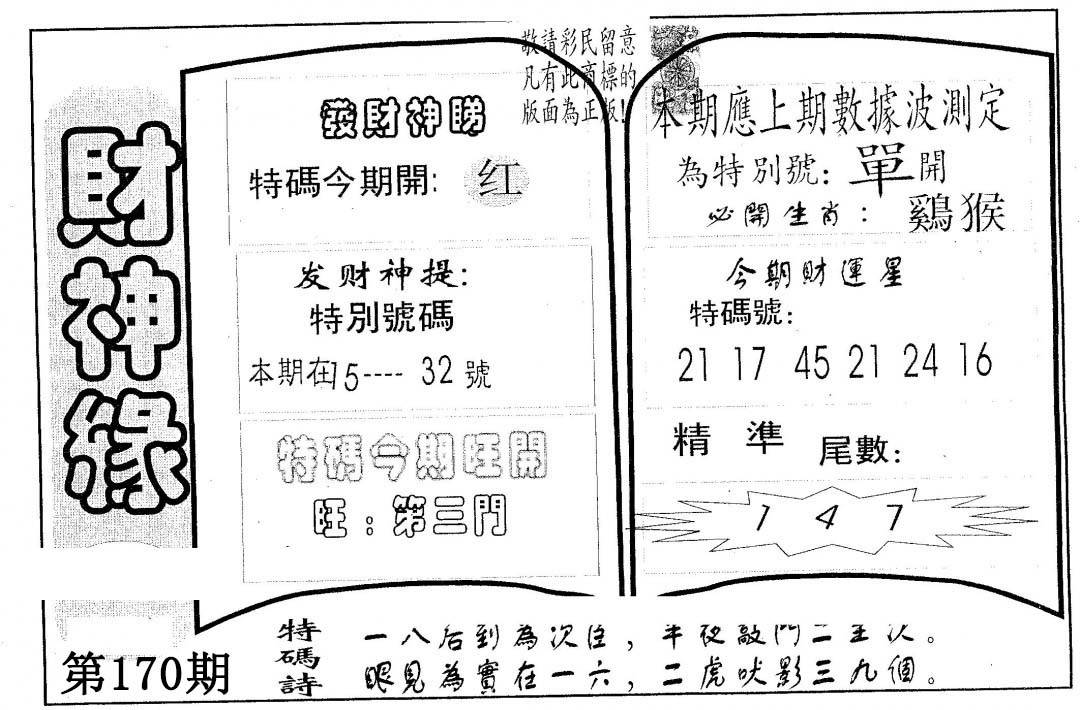 財神緣
敬請彩民留意
凡有此商標的
版面為正版!
發財神睇
特碼今期開: 红
发财神提:
特別號碼
本期在15---- 32 號
特碼今期旺開
旺:第三門
本期應上期數據波測定
為特別號: 單開
必開生肖: 鷄猴
今期財運星
特碼號:
21 17 45 21 24 16
精準 尾數:
1 4 7
第170期
特碼詩
一八后到為次住, 半夜敲門二
眼見為實在一六, 二虎吠影三九個。